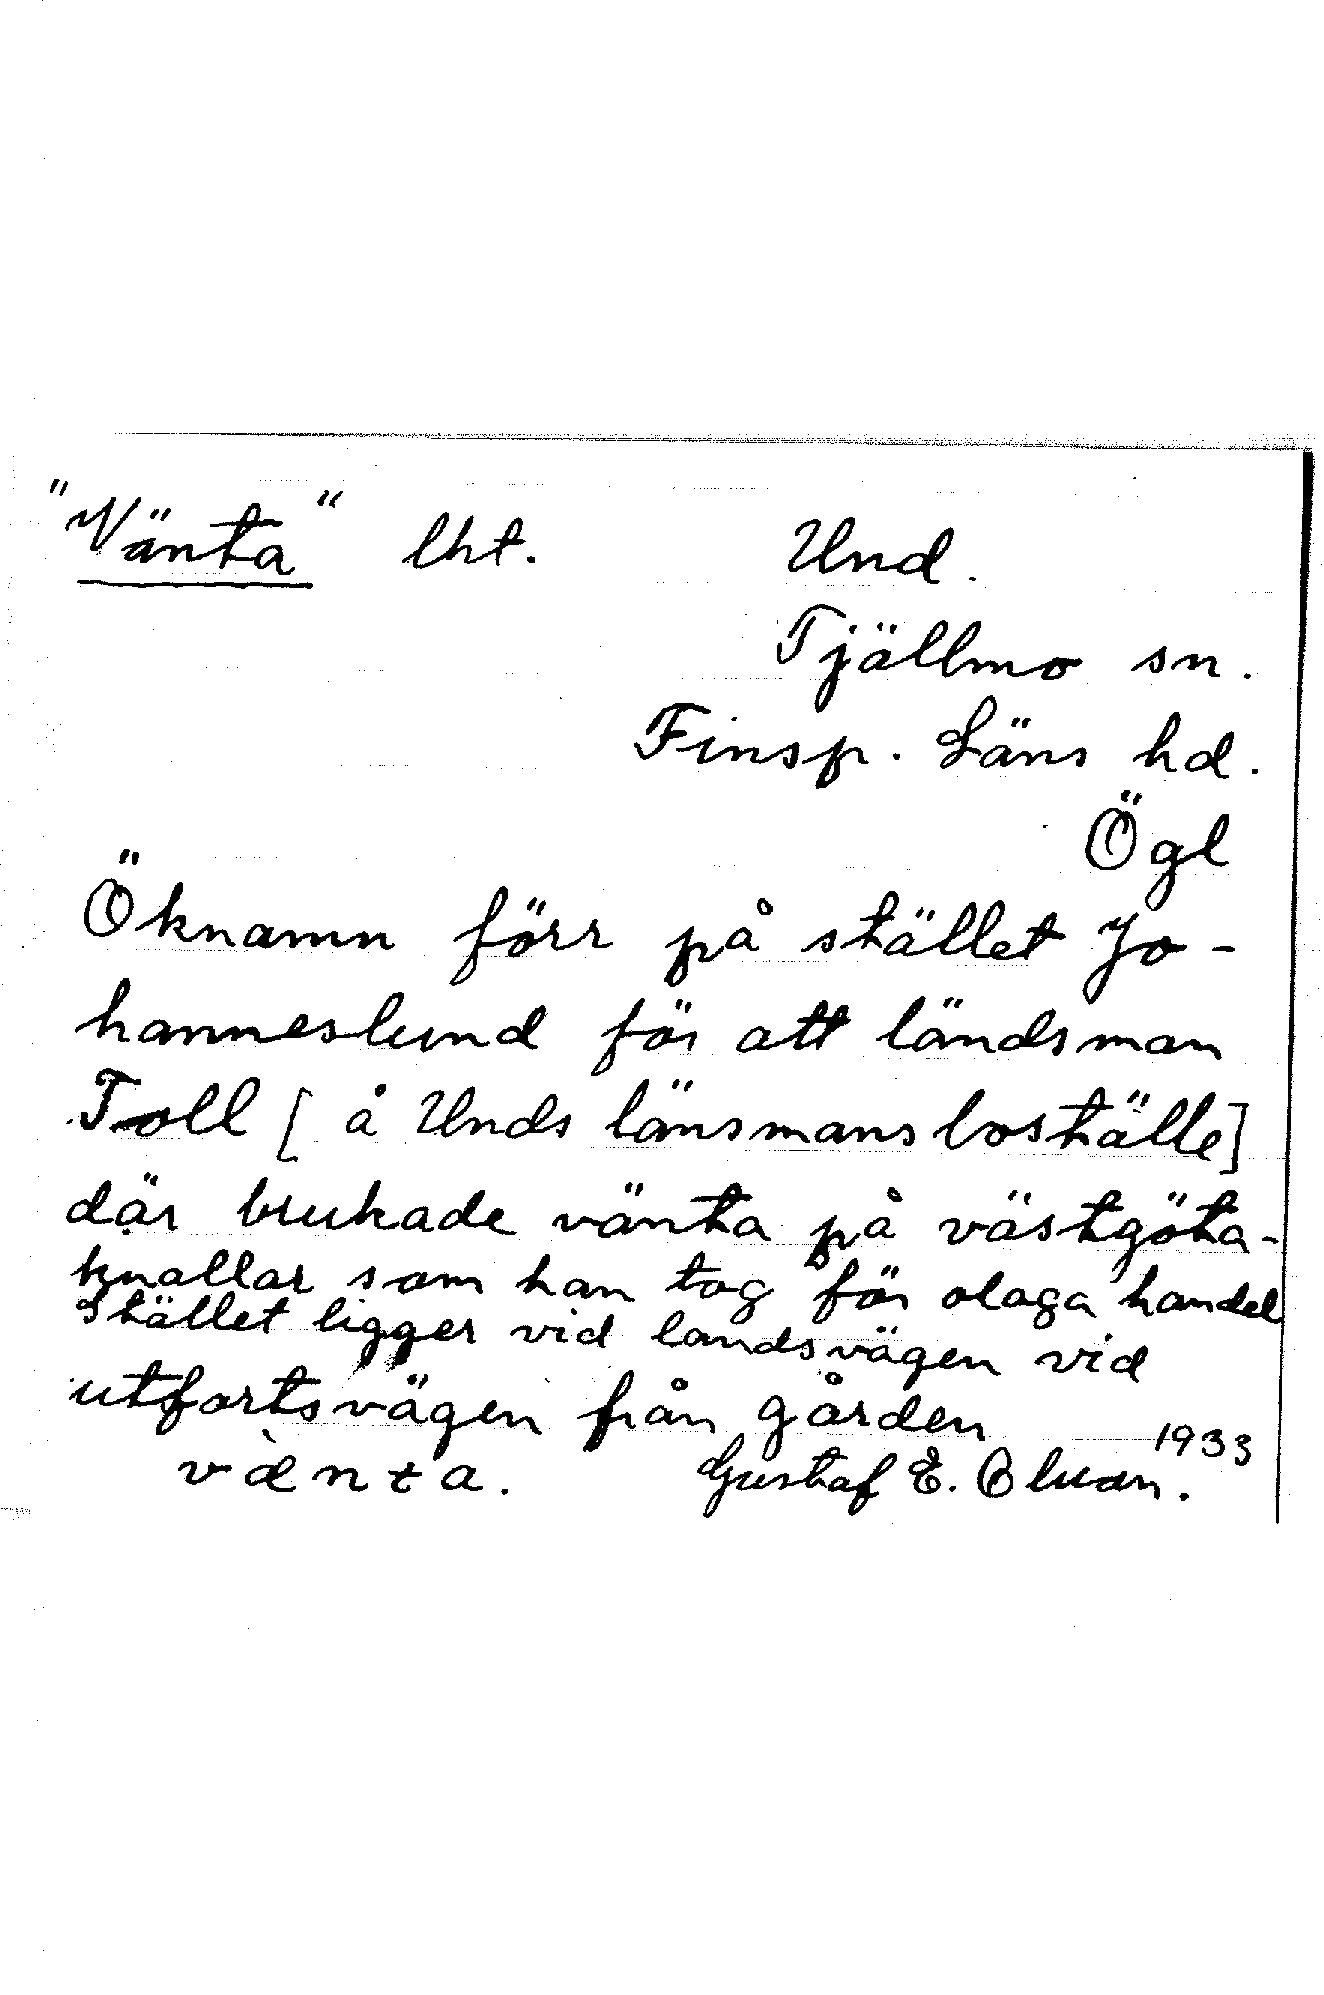 "Vänta" lht. Und.
Tjällmo sn.
Finsp. Läns hd.
Ögl
Öknamn förr på stället Jo-
hanneslund för att ländsman
Toll [å Unds länsmansboställe]
där brukade vänta på västgöta-
knallar som han tog för olaga handel
Stället ligger vid landsvägen vid
utfartsvägen från gården
vænta. Gustaf E. 1933